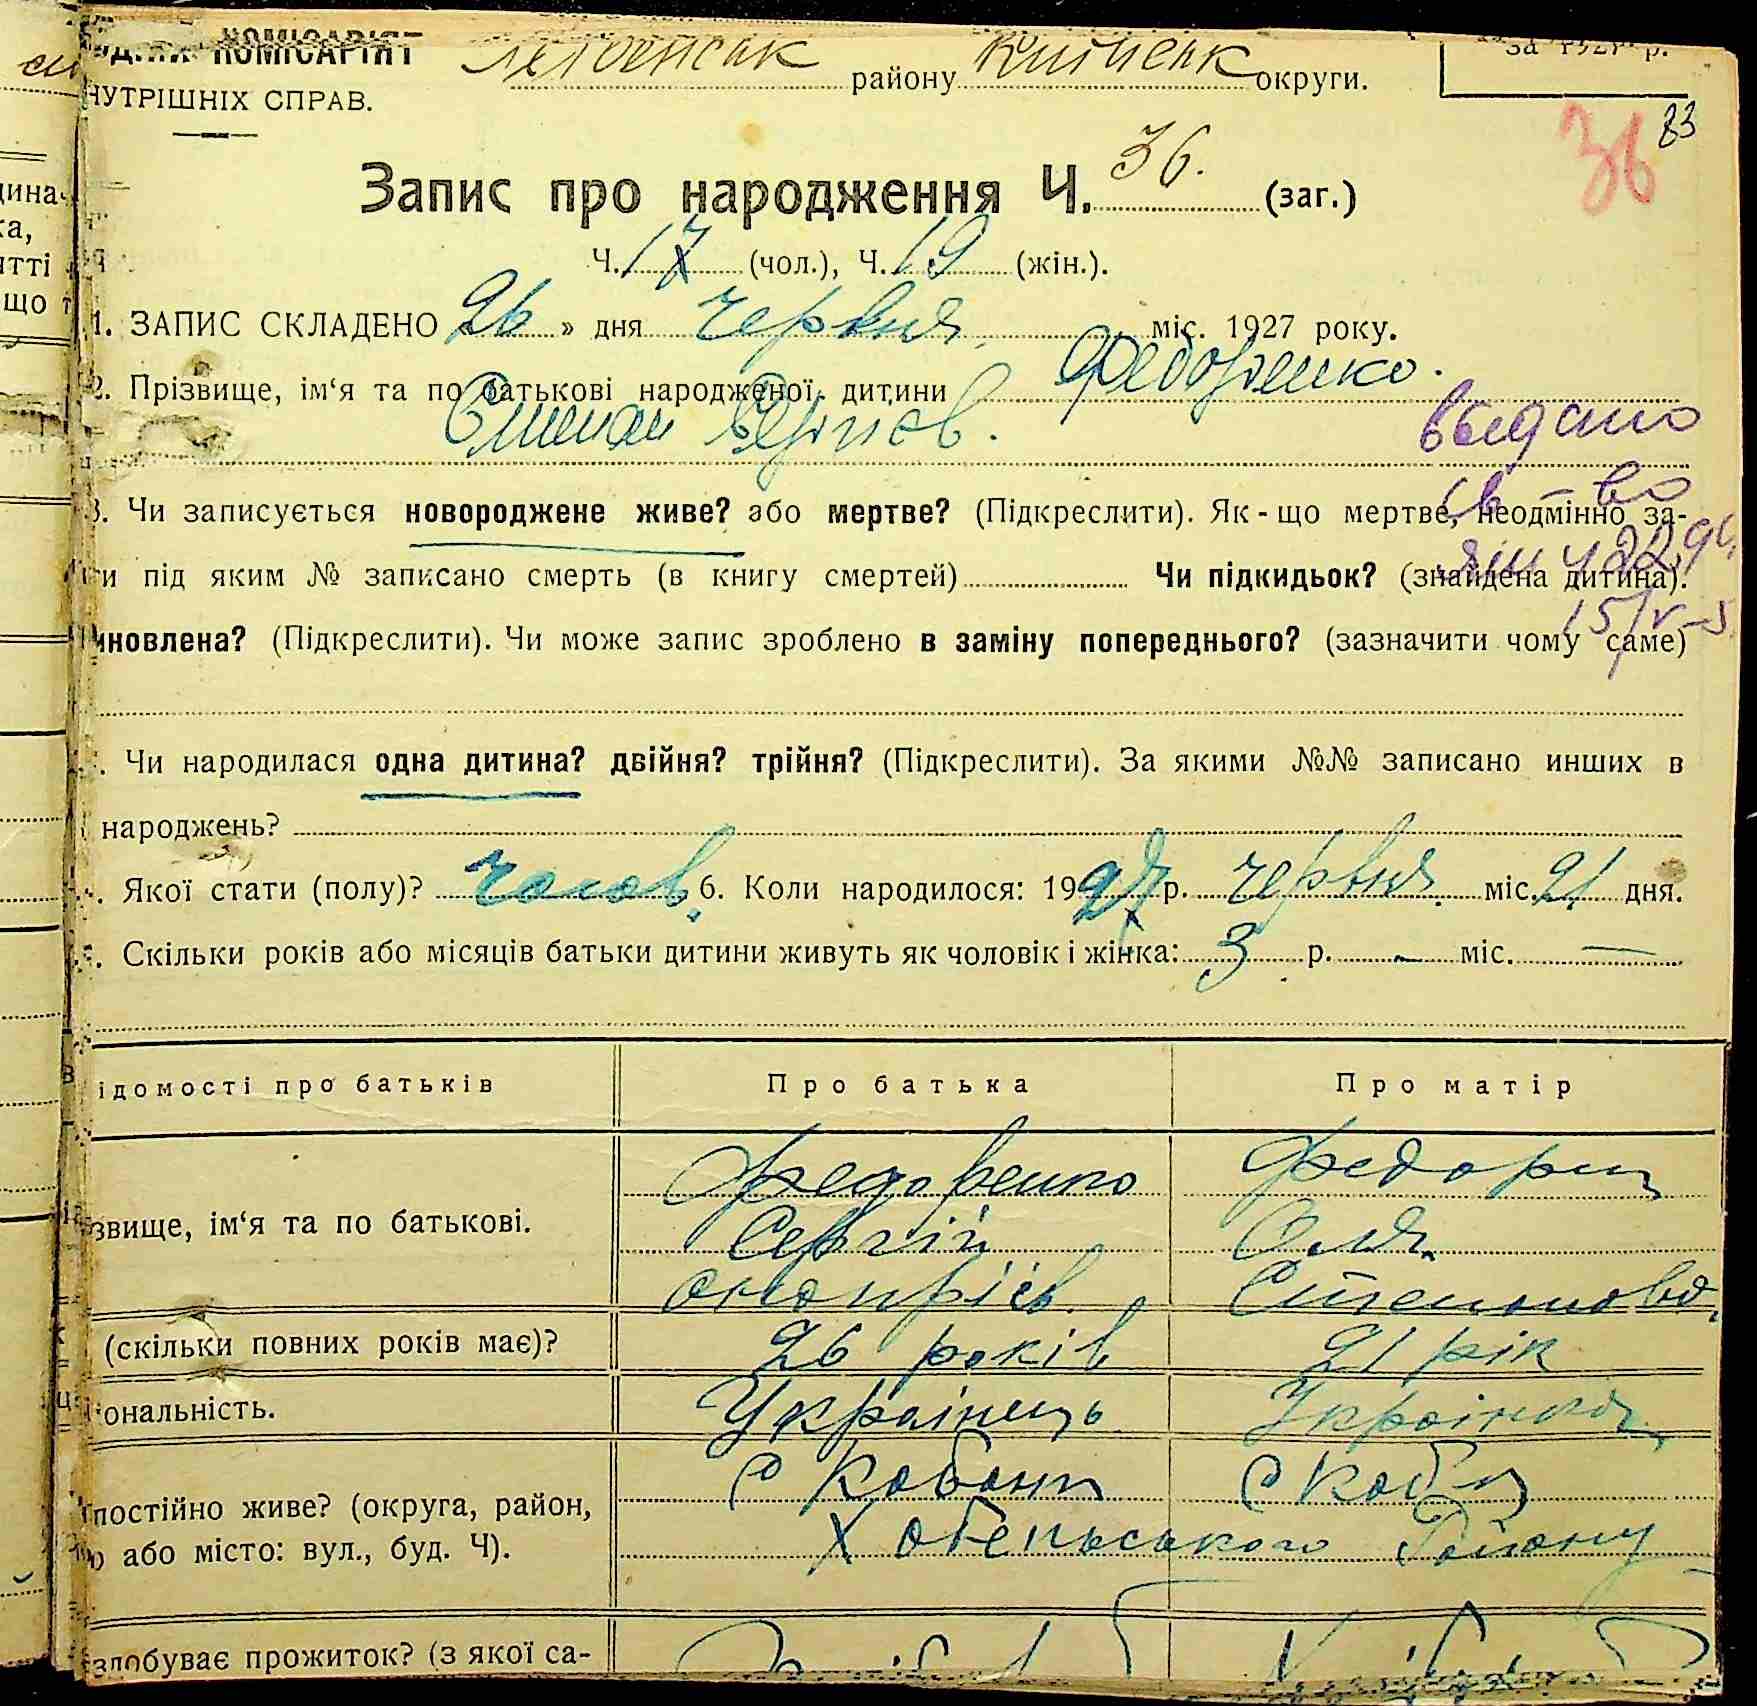 КОМІСАРІЯТ району округи. за 1927 р.
НУТРІШНІХ СПРАВ.
36 83
Запис про народження Ч. 36. (заг.)
Ч. 17 (чол.), Ч. 19 (жін.).
1. ЗАПИС СКЛАДЕНО « 26 » дня червня міс. 1927 року.
2. Прізвище, ім‘я та по батькові народженої дитини Федоренко.
Степан Сергієв.
выдано
3. Чи записується новороджене живе? або мертве? (Підкреслити). Як-що мертве, неодмінно за-
св-во
ти під яким № записано смерть (в книгу смертей) Чи підкидьок? (знайдена дитина).
иновлена? (Підкреслити). Чи може запис зроблено в заміну попереднього? (зазначити чому саме)
Чи народилася одна дитина? двійня? трійня? (Підкреслити). За якими №№ записано инших в
народжень?
Якої стати (полу)? чолов. 6. Коли народилося: 1927 р. червня міс. 21 дня.
Скільки років або місяців батьки дитини живуть як чоловік і жінка: 3 р. – міс. —
ідомості про батьків Про батька Про матір
Федоренко Федорен
звище, ім‘я та по батькові. Сергій Оля
Онопрієв. Степановa.
(скільки повних років має)? 26 років 21 рік
ональність. Українець Українка
с Кабани с Каб
постійно живе? (округа, район,
або місто: вул., буд. Ч). Хабенського Району
здобуває прожиток? (з якої са-